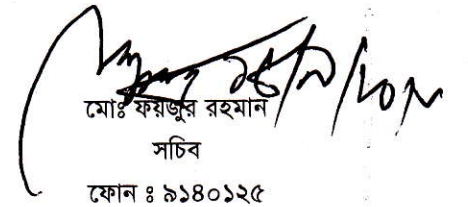 মোঃ ফয়জুর রহমান
সচিব
ফোন ঃ ৯১৪০১২৫